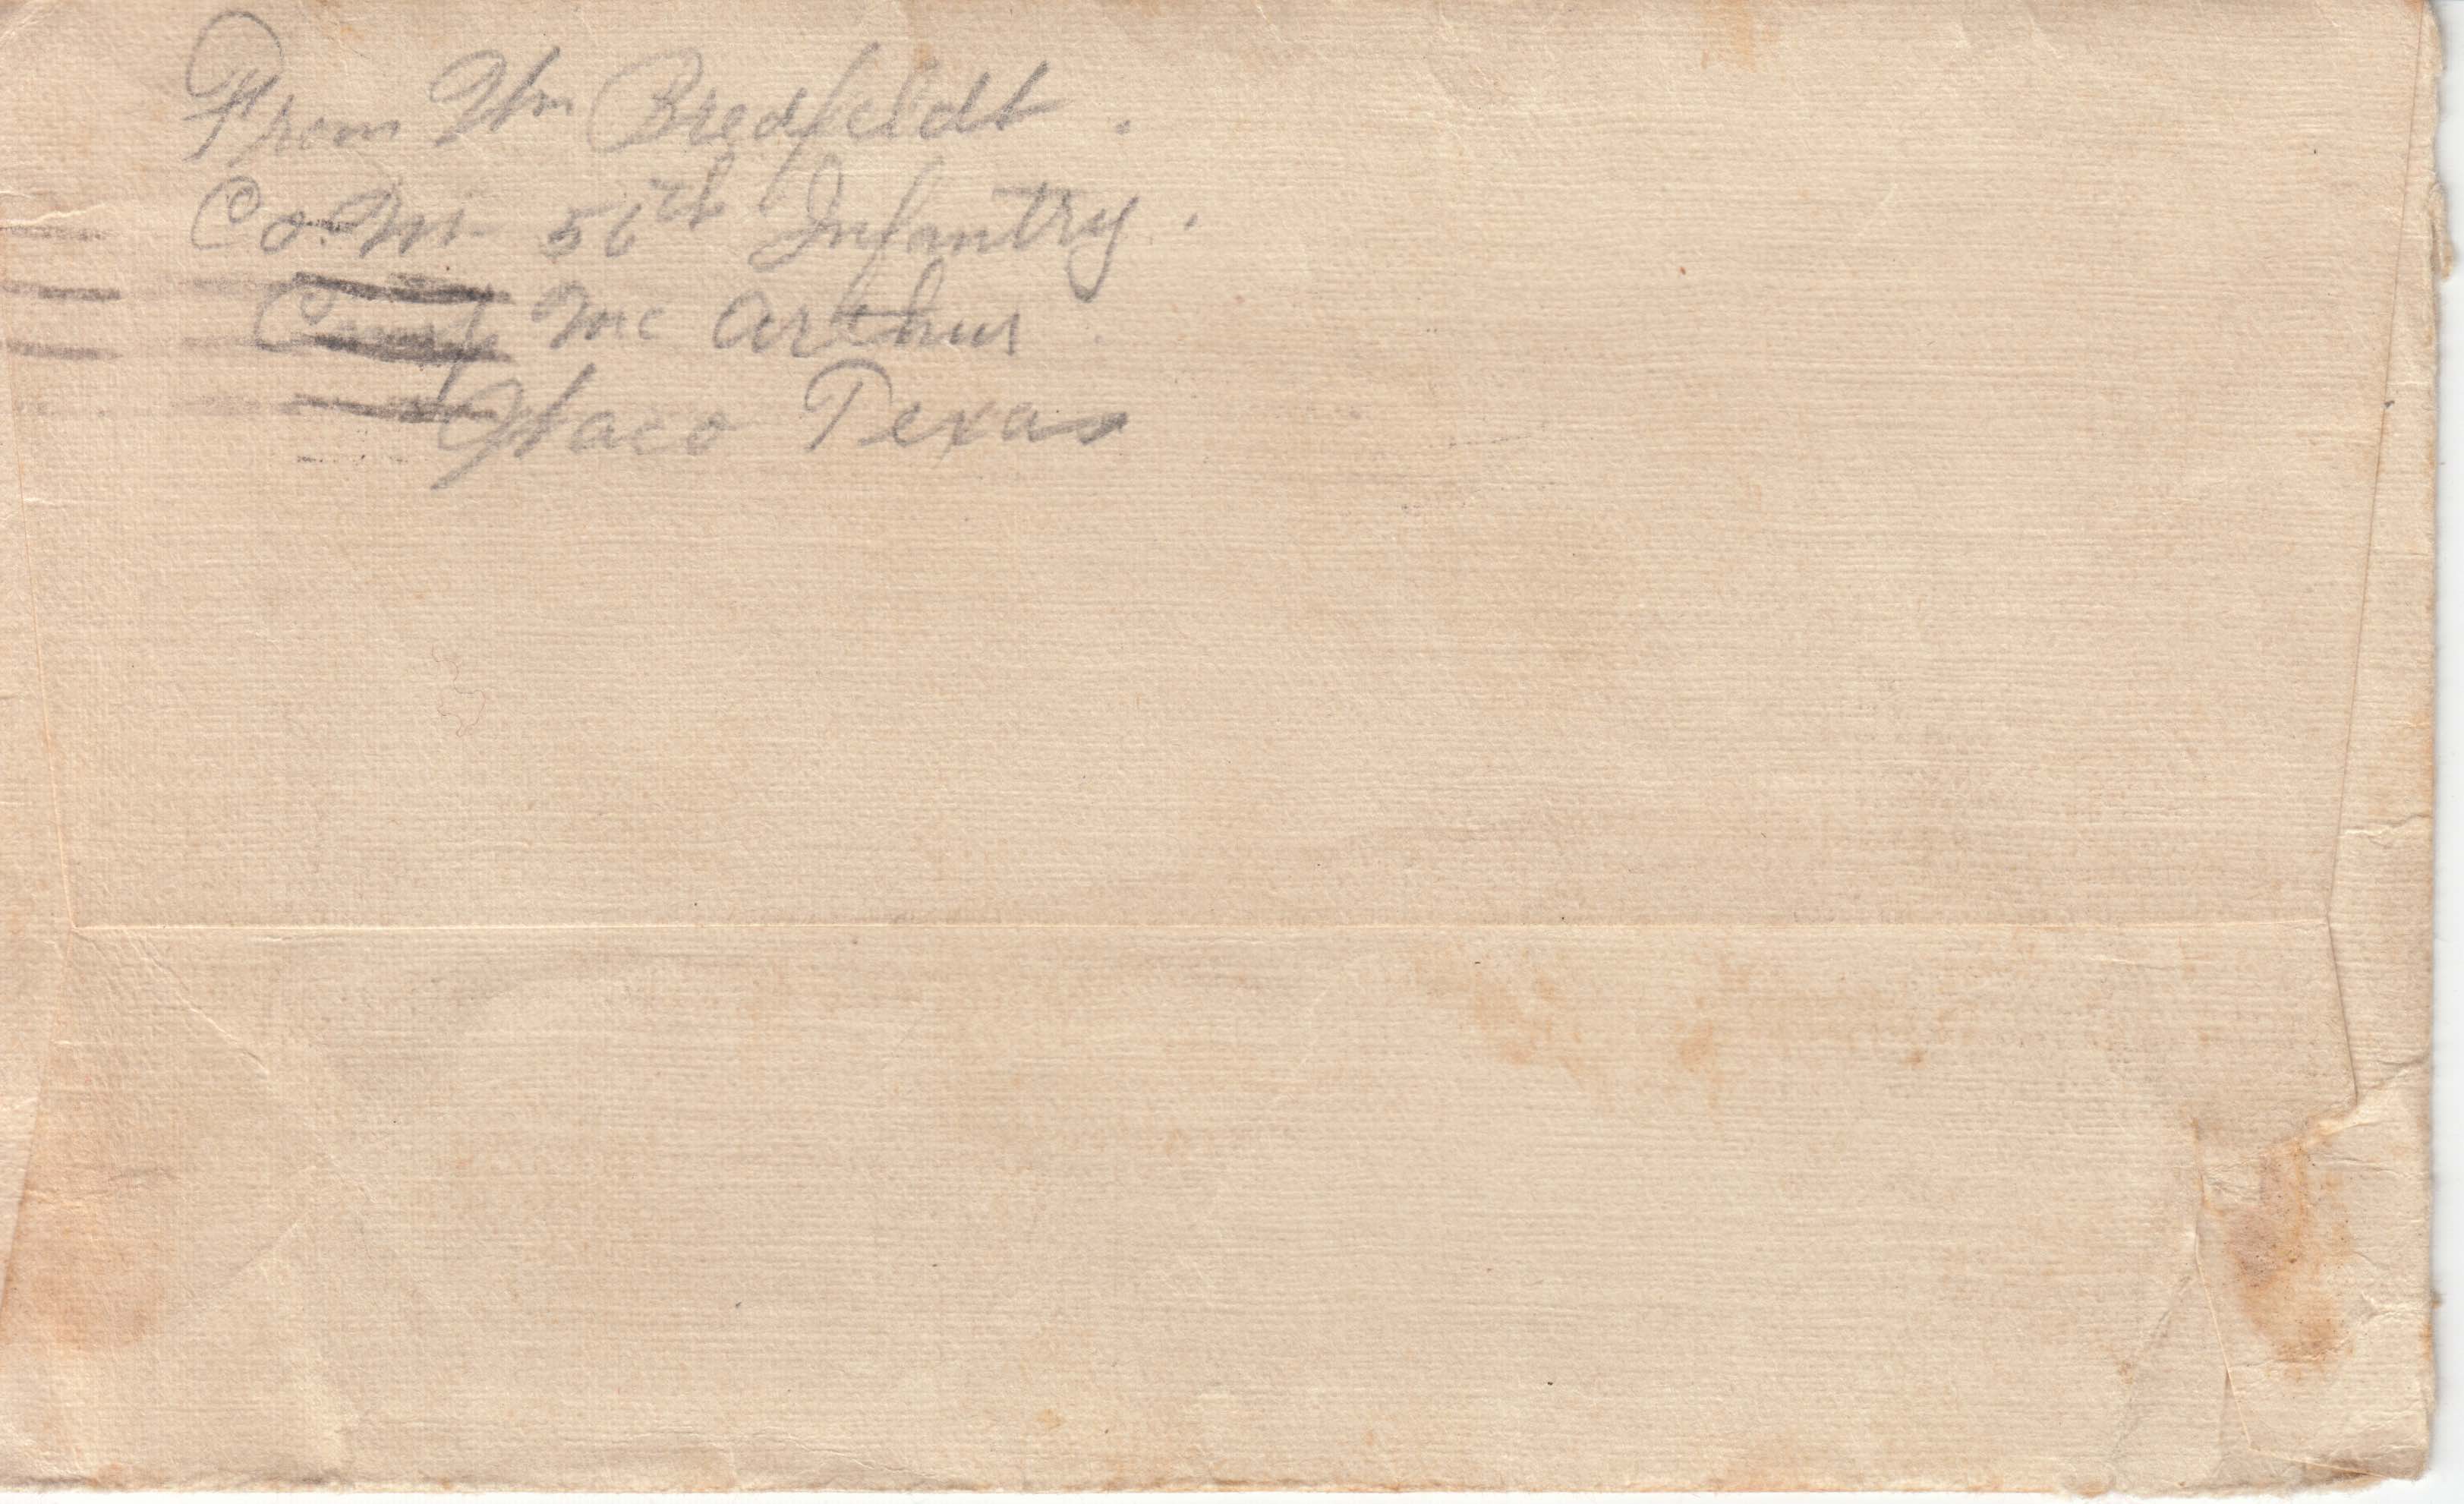 From Wm Bredfeldt.
Co. M. 56th Infantry.
Camp Mc Arthur.
Waco Texas